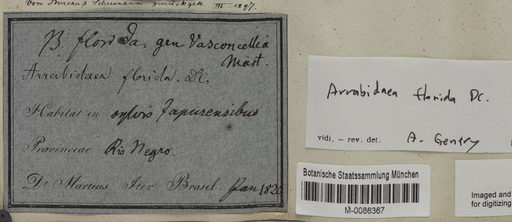 von Bureau & Schumann zurückgek. III. 1897.
B. florida. gen Vasconcellia
Mart.
Arrabidaea florida. DC.
Habitat in sylvis Japurensibus
Provinciae Rio Negro.
Dr. Martius Iter Brasil. Jan 1820
Arrabidaea florida DC.
vidi, – rev. det. A. Gentry
Botanische Staatssammlung München
M-0086367
Imaged and
for digitizing